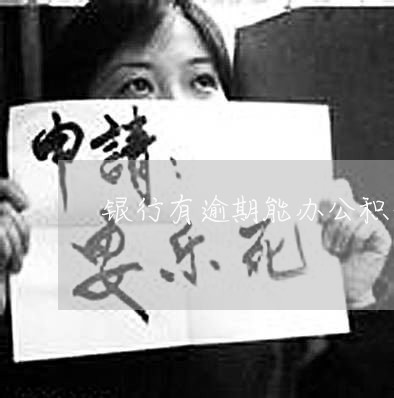 申請:
银行有逾期能办公积
安乐死